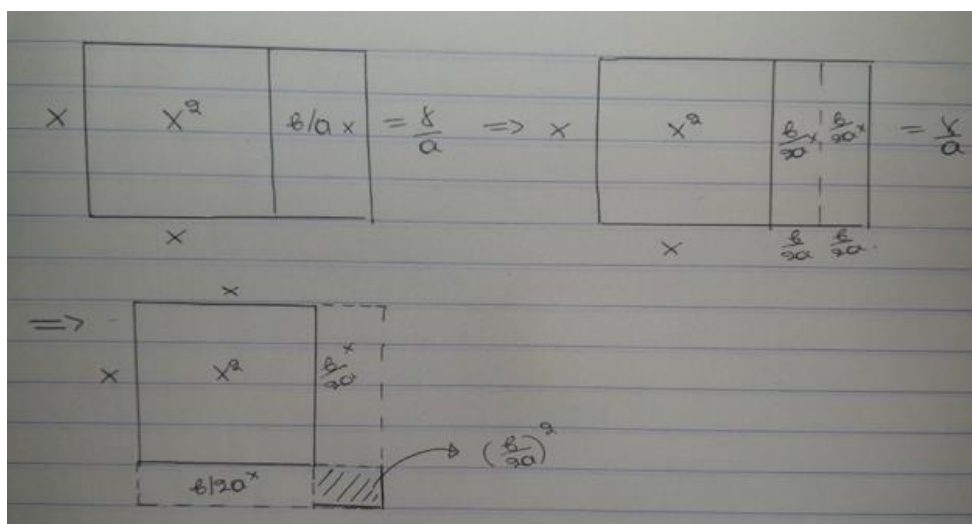 x x² b/a x = γ/a => x x² b/2a x b/2a x = γ/a
x x b/2a b/2a.
=> x
x x² b/2a x
b/2a x (b/2a)²